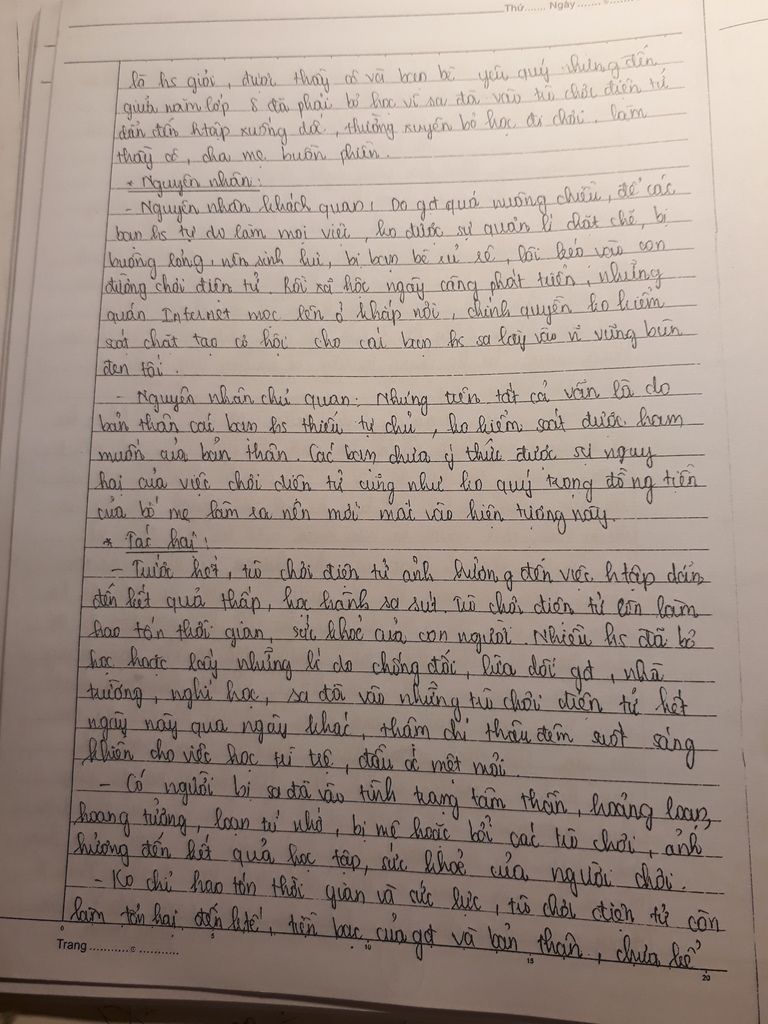 Thứ....... Ngày .......
là hs giỏi, được thầy cô và bạn bè yêu quý nhưng đến
giữa năm lớp 8 đã phải bỏ học vì sa đà vào trò chơi điện tử
dẫn đến htập xuống dốc, thường xuyên bỏ học đi chơi, làm
thầy cô, cha mẹ buồn phiền.
* Nguyên nhân:
- Nguyên nhân khách quan: Do gđ quá nuông chiều, để các
bạn hs tự do làm mọi việc, ko được sự quản lí chặt chẽ, bị
buông lỏng, nên sinh hư, bị bạn bè rủ rê, lôi kéo vào con
đường chơi điện tử. Rồi xã hộc ngày càng phát triển, những
quán Internet mọc lên ở khắp nơi, chính quyền ko kiểm
soát chặt tạo cơ hội cho cái bạn hs sa lầy vào vũng bùn
đen tối.
- Nguyên nhân chủ quan: Nhưng trên tất cả vẫn là do
bản thân các bạn hs thiếu tự chủ, ko kiểm soát được ham
muốn của bản thân. Các bạn chưa ý thức được sự nguy
hại của việc chơi điện tử cũng như ko quý trọng đồng tiền
của bố mẹ làm ra nên mới mắc vào hiện tượng này.
* Tác hại:
- Trước hết, trò chơi điện tử ảnh hưởng đến việc htập dẫn
đến kết quả thấp, học hành sa sút. Trò chơi điện tử còn làm
hao tốn thời gian, sức khoẻ của con người. Nhiều hs đã bỏ
học hoặc lấy những lí do chống đối, lừa dối gđ, nhà
trường, nghỉ học, sa đà vào những trò chơi điện tử hết
ngày này qua ngày khác, thậm chí thâu đêm suốt sáng
khiến cho việc học trì trệ, đầu óc mệt mỏi.
- Có người bị sa đà vào tình trạng tâm thần, hoảng loạn,
hoang tưởng, loạn trí nhớ, bị mê hoặc bởi các trò chơi, ảnh
hưởng đến kết quả học tập, sức khoẻ của người chơi.
- Ko chỉ hao tốn thời gian và sức lực, trò chơi điện tử còn
làm tổn hại đến ktế, tiền bạc của gđ và bản thân, chưa kể
0 5 10 15 20
Trang ...........